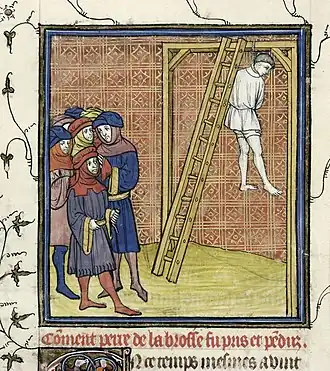 Cōment pierre de la broſſe fu pris et pēduz.
En ce temps meiſmes avint